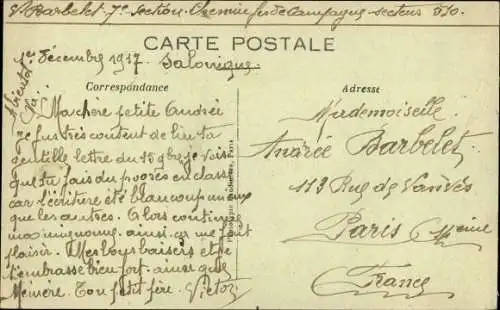 V. Barbelet 7e section. Chemin fer de Campagne secteur 510.
CARTE POSTALE
1er décembre 1917 Salonique
Correspondance
Adresse
Bientôt
Ma chère petite Andrée
je fus très content de lire ta
gentille lettre du 15 9bre je vois
que tu fais du progrès en classe
car l'écriture été beaucoup mieux
que les autres. Alors continue
ma mignonne ainsi. ça me fait
plaisir. Mes bons baisers et je
t'embrasse bien fort. ainsi que
Mémère. Ton petit père. Victor
Mademoiselle
Andrée Barbelet
113 Rue de Vanves
Paris Seine
France